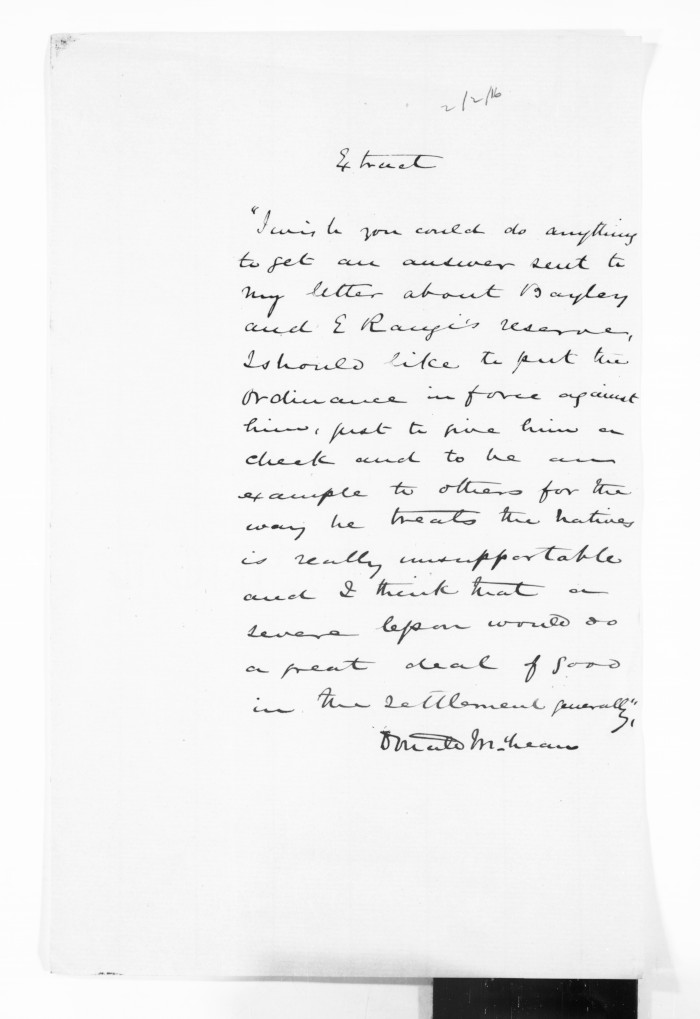 2/2/16
Extract
"I wish you could do anything
to get an answer sent to
my letter about Bayley
and E Rangi's reserve,
I should like to put the
Ordinance in force against
him, just to give him a
check and to be an
example to others for the
way he treats the Natives
is really unsupportable
and I think that a
severe lesson would do
a great deal of good
in the settlement generally",
Donald McLean